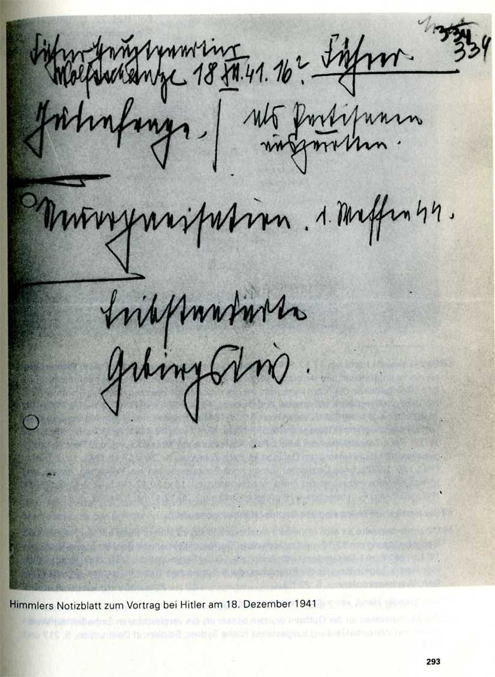 334
334
Führerhauptquartier
Wolfschanze 18 XII.41. 16? Führer.
Judenfrage. | als Partisanen
auszurotten.
Neuorganisation. 1. Waffen SS.
Leibstandarte
Gebirgsdiv.
Himmlers Notizblatt zum Vortrag bei Hitler am 18. Dezember 1941
293